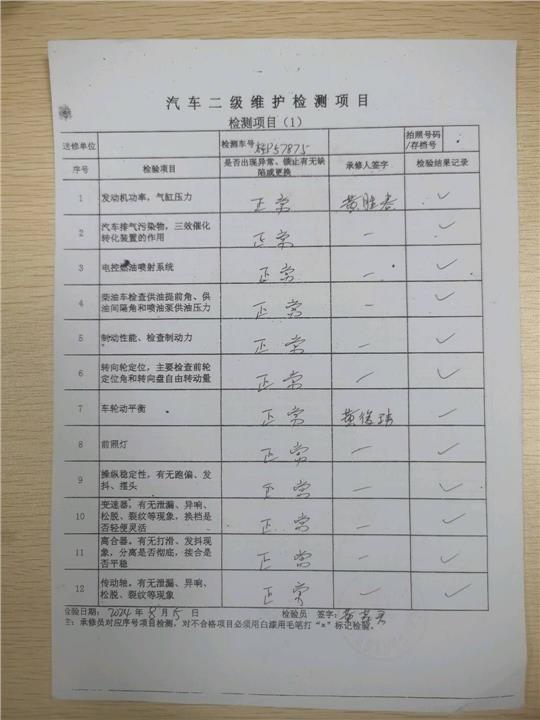 汽车二级维护检测项目
检测项目（1）
送修单位 检测车号 P57875 拍照号码/存档号
序号 检验项目 是否出现异常、锁止有无缺陷或更换 承修人签字 检验结果记录
1 发动机功率，气缸压力 正常 黄胜春 ✓
2 汽车排气污染物，三效催化转化装置的作用 正常 — ✓
3 电控燃油喷射系统 正常 — ✓
4 柴油车检查供油提前角、供油间隔角和喷油泵供油压力 正常 — ✓
5 制动性能、检查制动力 正常 — ✓
6 转向轮定位，主要检查前轮定位角和转向盘自由转动量 正常 — ✓
7 车轮动平衡 正常 黄俊 ✓
8 前照灯 正常 — ✓
9 操纵稳定性，有无跑偏、发抖、摆头 正常 — ✓
10 变速器，有无泄漏、异响、松脱、裂纹等现象，换档是否轻便灵活 正常 — ✓
11 离合器，有无打滑、发抖现象，分离是否彻底，接合是否平稳 正常 — ✓
12 传动轴，有无泄漏、异响、松脱、裂纹等现象 正常 — ✓
检验日期：2024年8月15日 检验员 签字：黄
注：承修员对应序号项目检测，对不合格项目必须用白漆用毛笔打“×”标记检验。